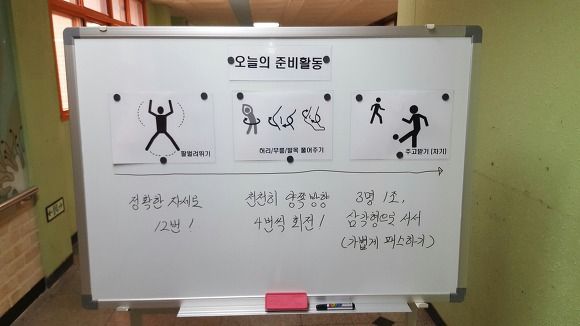 오늘의 준비활동
팔벌려뛰기
허리/무릎/발목 풀어주기
주고받기 (차기)
정확한 자세로
12번!
천천히 양쪽 방향
4번씩 회전!
3명 1조,
삼각형으로 서서
(가볍게 패스하기)